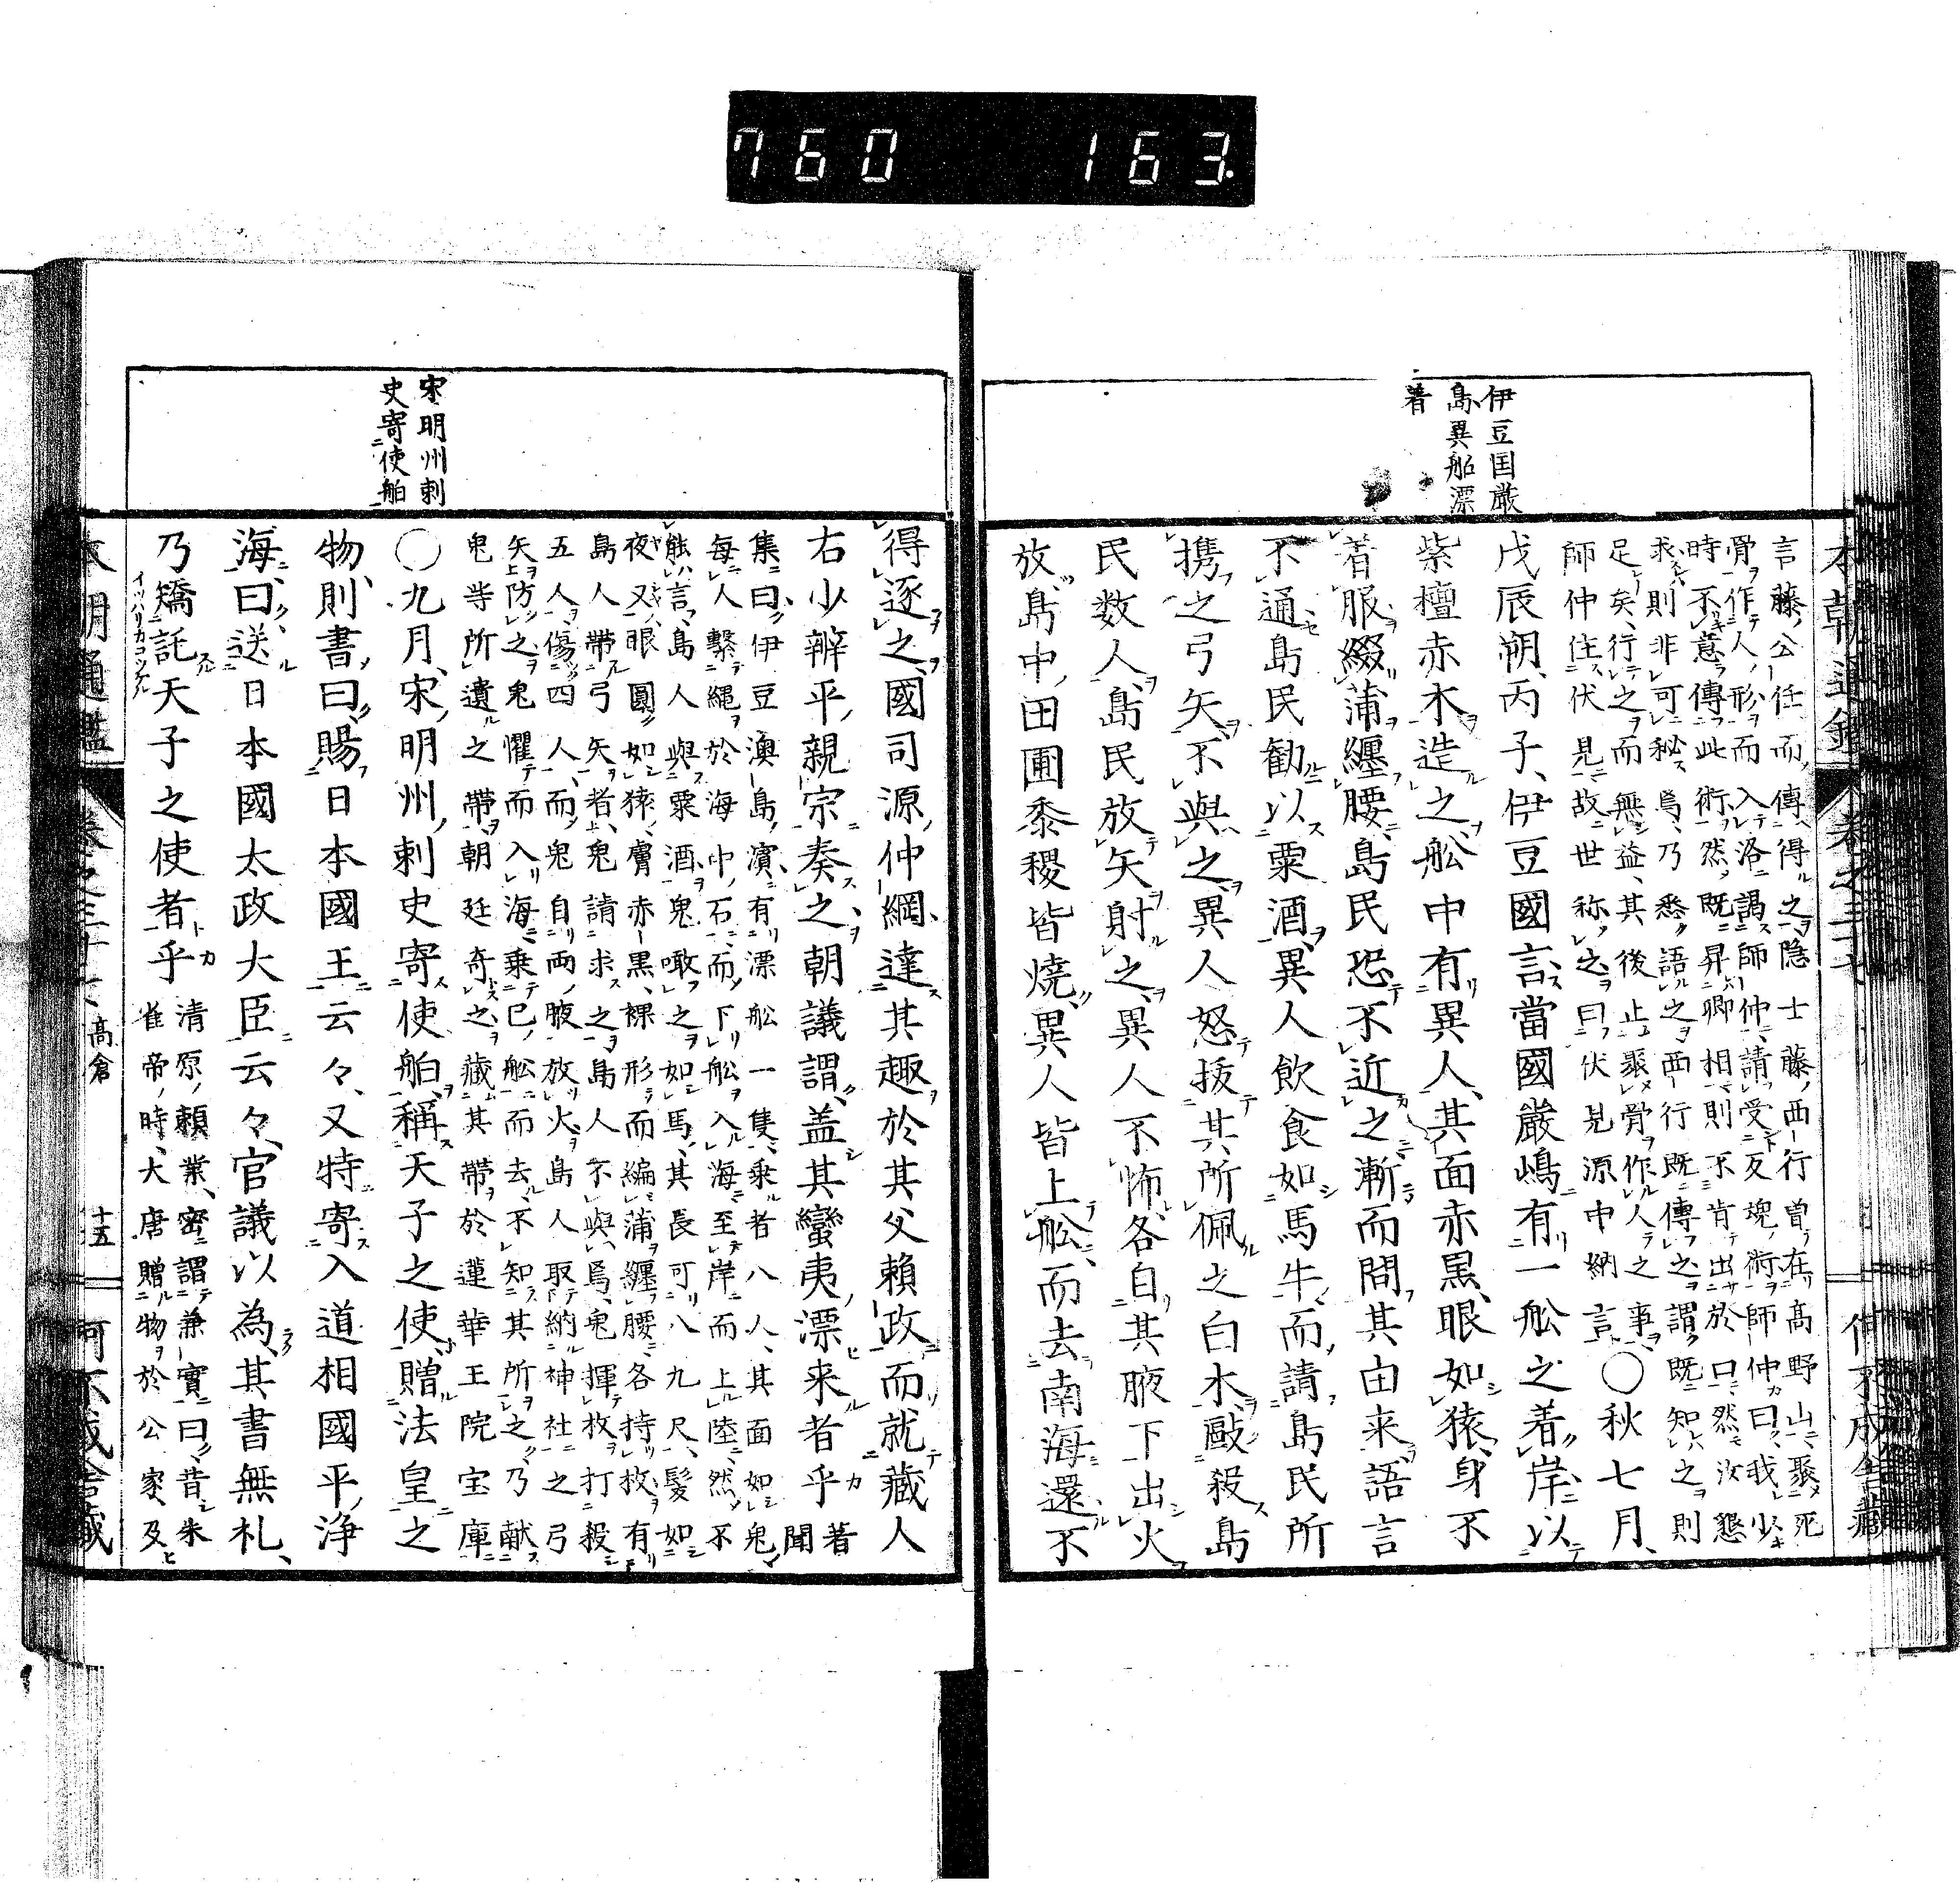 760 163.
伊豆国厳
島異船漂
着
本朝通鑑
言藤公任而傳得之隐士藤西行曽在髙野山聚死
骨作人形而入洛謁師仲請受反魂術師仲曰我少
時不意傳此術然既昇卿相則不肯出於口然汝懇
求則非可秘焉乃悉語之西行既傳之謂既知之則
足矣行之而無益其後止聚骨作人之事
師仲住伏見故世称之曰伏見源中納言〇秋七月
戊辰朔丙子伊豆國言當國嚴嶋有一舩之着岸以
紫檀赤木造之舩中有異人其面赤黒眼如猿身不
着服綴蒲纒腰島民恐不近之漸而問其由来語言
不通島民勧以粟酒異人飲食如馬牛而請島民所
携之弓矢不與之異人怒抜其所佩之白木毆殺島
民数人島民放矢射之異人不怖各自其腋下出火
放島中田圃黍稷皆焼異人皆上舩而去南海還不
得逐之國司源仲綱達其趣於其父頼政而就藏人
右少辨平親宗奏之朝議謂盖其蠻夷漂来者乎著聞
集曰伊豆澳島濱有漂舩一隻乗者八人其面如鬼
毎人繋繩於海中石而下舩入海至岸而上陸然不
能言島人與粟酒鬼噉之如馬其長可八九尺髮如
夜叉眼圓如猿膚赤黒裸形而編蒲纒腰各持杖有
島人帶弓矢者鬼請求之島人不與焉鬼揮杖打殺
五人傷四人而鬼自両腋放火島人取納神社之弓
矢防之鬼懼而入海乗已舩而去不知其所之乃献
鬼等所遺之帶朝廷奇之藏其帶於蓮華王院宝庫
〇九月宋明州刺史寄使舶稱天子之使贈法皇之
物則書曰賜日本國王云々又特寄入道相國平浄
海曰送日本國太政大臣云々官議以為其書無札
乃矯託天子之使者乎
イツハリカコツケル
清原頼業密謂兼實曰昔朱
雀帝時大唐贈物於公家及
宋明州刺
史寄使舶
髙倉
十五